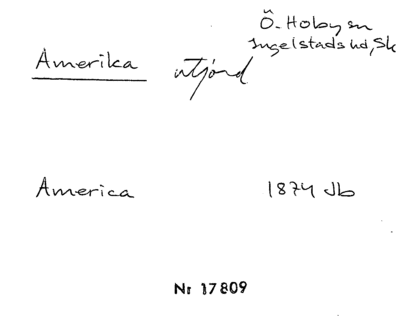 Ö. Hoby sn
Ingelstads hd, Sk
Amerika utjord
America 1874 Jb
Nr 17809